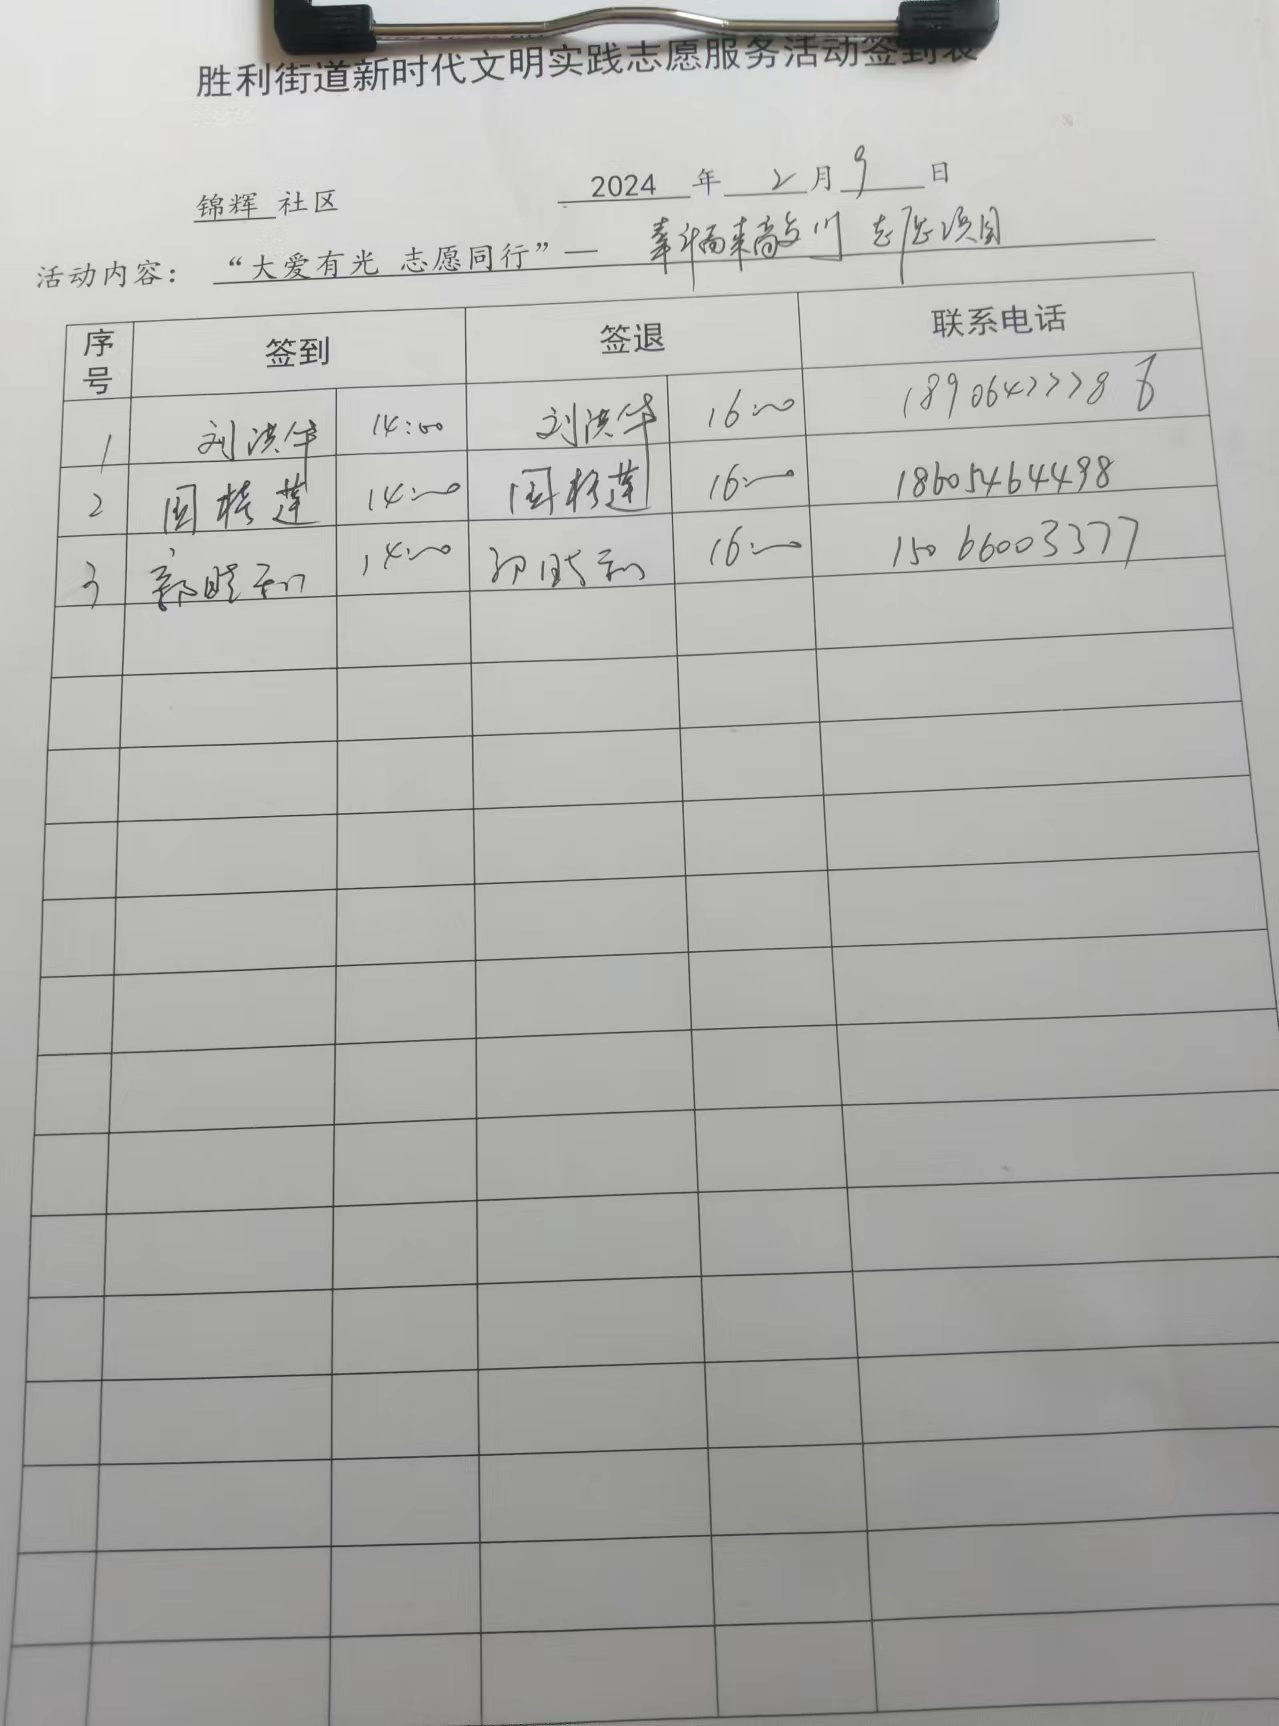 胜利街道新时代文明实践志愿服务活动签到表
锦辉 社区 2024 年 2 月 9 日
活动内容: “大爱有光 志愿同行”— 志愿项目
序号 签到 签退 联系电话
1 刘洪华 14:00 刘洪华 16:00 18906477786
2 国桂莲 14:00 国桂莲 16:00 18605464498
3 郭晓 14:00 16:00 15066003377